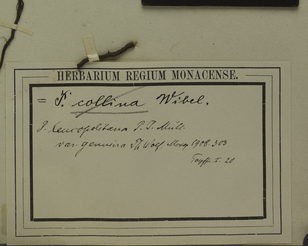 HERBARIUM REGIUM MONACENSE.
= P. collina Wibel.
P. leucopolitana P. J. Müll.
var. genuina Th. Wolf Monogr. 1908. 303
I. 20